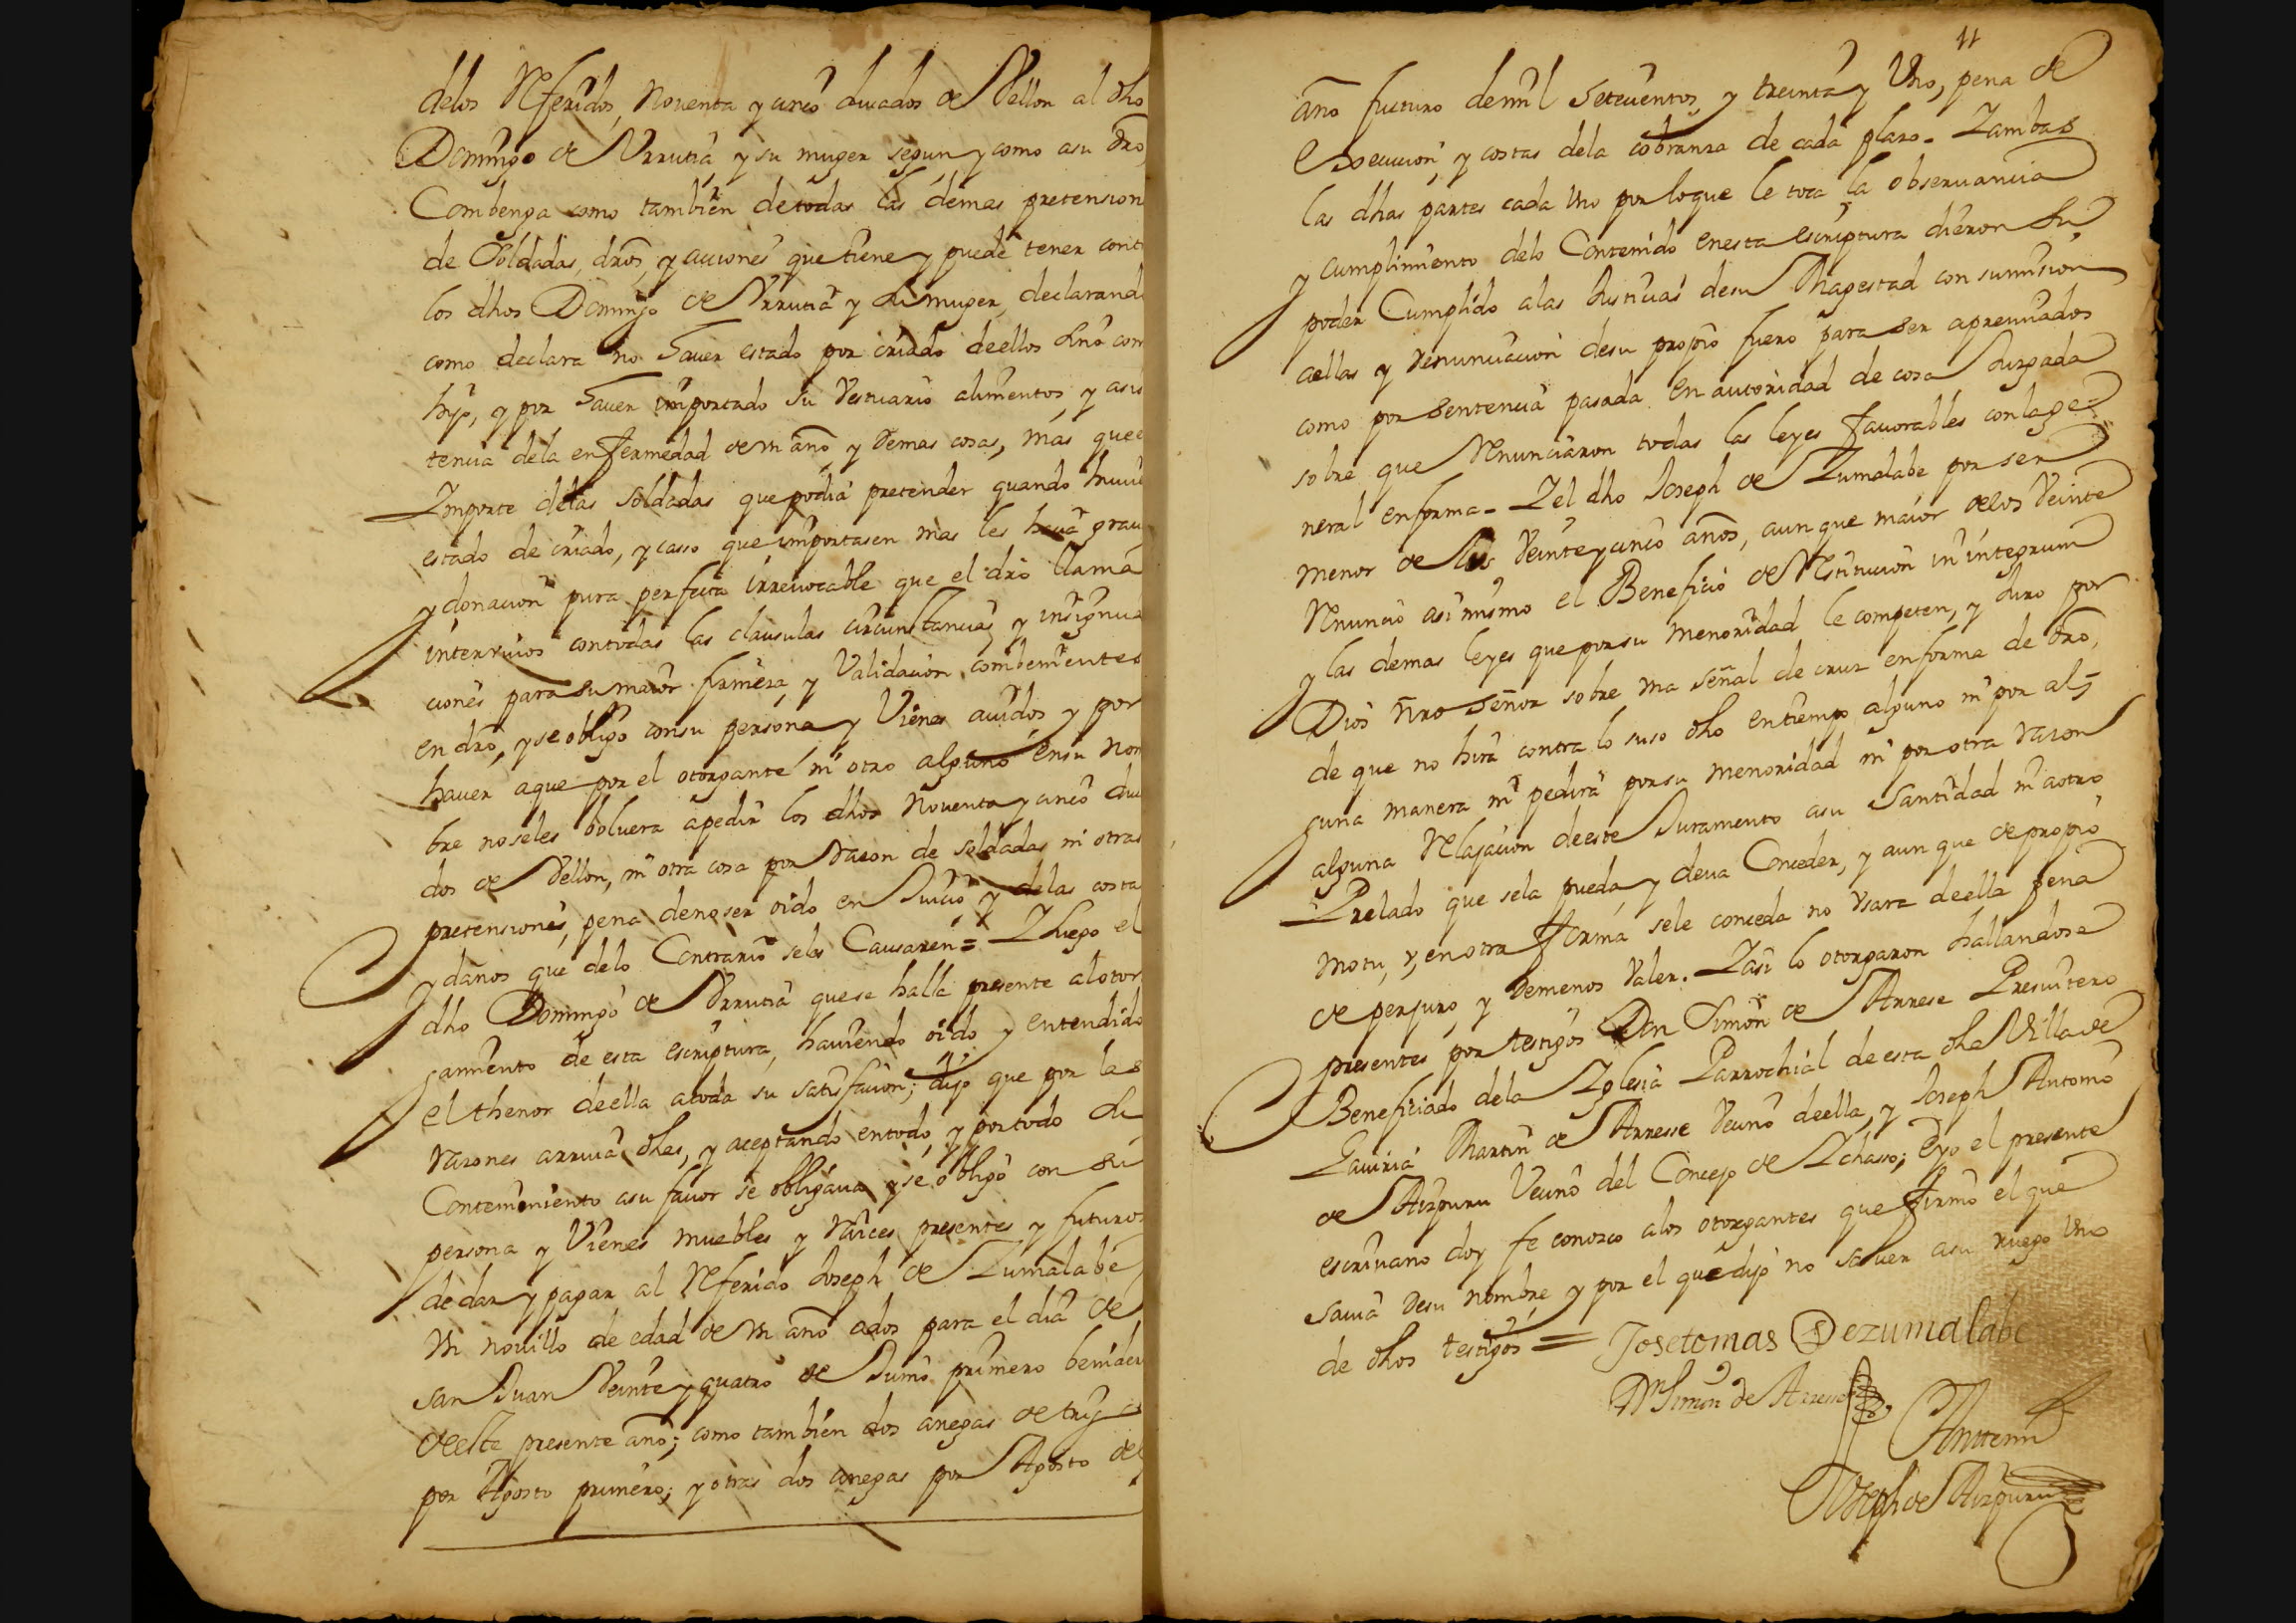 delos Referidos, Noventa y cinco ducados de Vellon al dho
Domingo de Vrrutia, y su muger segun y como asu dro,
Combenga como tambien detodas las demas pretension
de Soldadas, dros, y acciones que tiene y puede tener cont
los dhos Domingo de Vrrutia y su muger, declarand
como declara no hauer estado por criado deellos sino com
hijo, y por hauer importado su Vestuario alimentos, y asis
tencia dela enfermedad de vn año y demas cosas, mas que e
Importe delas soldadas que podia pretender quando huuie
estado de criado, y casso que importasen mas les hacia grac
y donacion pura perfecta irreuocable que el dro llama
interviuos contodas las clausulas circunstancias y insignua
ciones para su maior firmeza y Validacion combenientes
en dro, y se obligo consu persona y Vienes auidos y por
hauer aque por el otorgante ni otro alguno ensu Nom
bre noseles boluera apedir los dhos Noventa y cinco duca
dos de Vellon, ni otra cosa por razon de soldadas ni otras
pretensiones, pena denoser oido en Juicio y delas costa
y daños que delo Contrario seles Causaren = Y luego el
dho Domingo de Vrrutia que se halla presente alotor
gamiento de esta escriptura, hauiendo oido y entendido
el thenor deella atoda su satisfacion; dijo que por las
razones arriua dhas, y aceptando entodo, y portodo su
Contenimiento asu fauor se obligaua y se obligo con su
persona y Vienes muebles y raices presentes y futuros
de dar y pagar al Referido Joseph de Zumalabe
vn nouillo de edad de vn año ados para el dia de
san Juan Veinte y quatro de Junio primero benider
de este presente año; como tambien dos anegas de trigo
por Agosto primero; y otras dos anegas por Agosto del
11
año futuro demil setecientos y treinta y Vno, pena de
execucion, y costas dela cobranza de cada plazo. Y ambas
las dhas partes cada vno por loque le toca la obseruancia
y cumplimiento delo Contenido enesta escriptura dieron su
poder Cumplido alas Justicias desu Magestad con sumision
aellas y renunciacion desu propio fuero para ser apremiados
como por sentencia pasada en autoridad de cosa Juzgada
sobre que Renunciaron todas las leyes fauorables conla ge
neral enforma. Y el dho Joseph de Zumalabe por ser
menor de los Veinte y cinco años, aunque maior delos Veinte
Renuncio asimismo el Beneficio de Restitucion in integrum
y las demas leyes que por su menoridad le competen, y Juro por
Dios nro señor sobre vna señal de cruz enforma de dro,
de que no hira contra lo suso dho entiempo alguno ni por al
guna manera ni pedira por su menoridad ni por otra razon
alguna Relajacion deeste Juramento asu Santidad ni aotro
Prelado que sela pueda, y deua Conceder, y aun que de propio
motu, v, en otra forma sele conceda no vsara deella pena
de perjuro, y demenos Valer. Y asi lo otorgaron hallandose
presentes por testigos Dn Simon de Arrese Presuitero
Beneficiado dela Yglesia Parrochial de esta dha Villa de
Lauiria Martin de Arresse Vecino deella, y Joseph Antonio
de Aizpuru Vecino del Concejo de Ichasso; Eyo el presente
escriuano doy fe conozco alos otorgantes que firmo el que
sauia desu nombre, y por el que dijo no sauer asu ruego vno
de dhos testigos = Josetomas Dezumalabe
Dn Simon de Arrese
Antemi
Joseph de Aizpuru